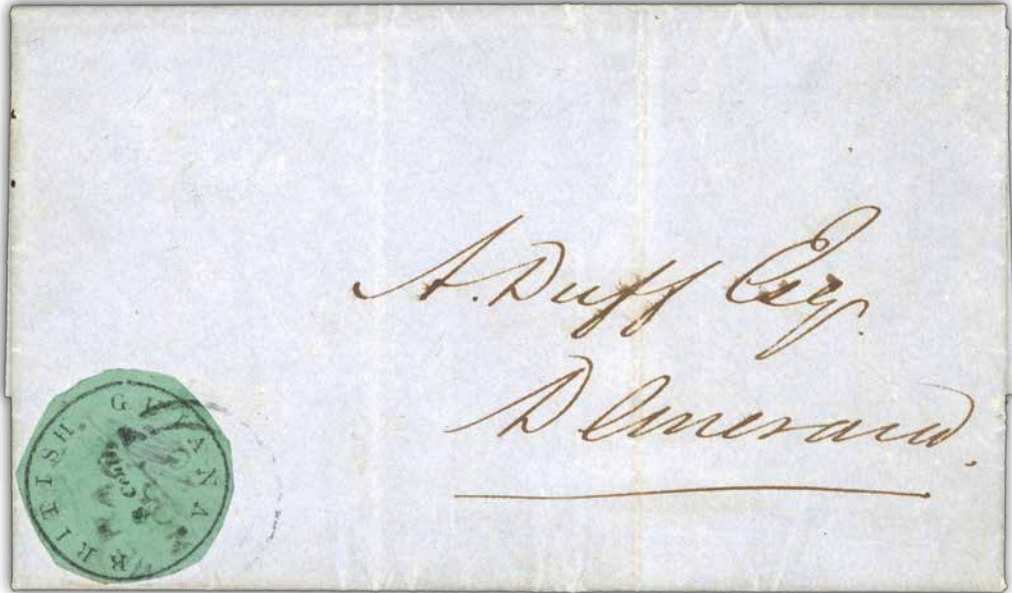 A. Duff Esq.
Demerara.
BRITISH. GUIANA